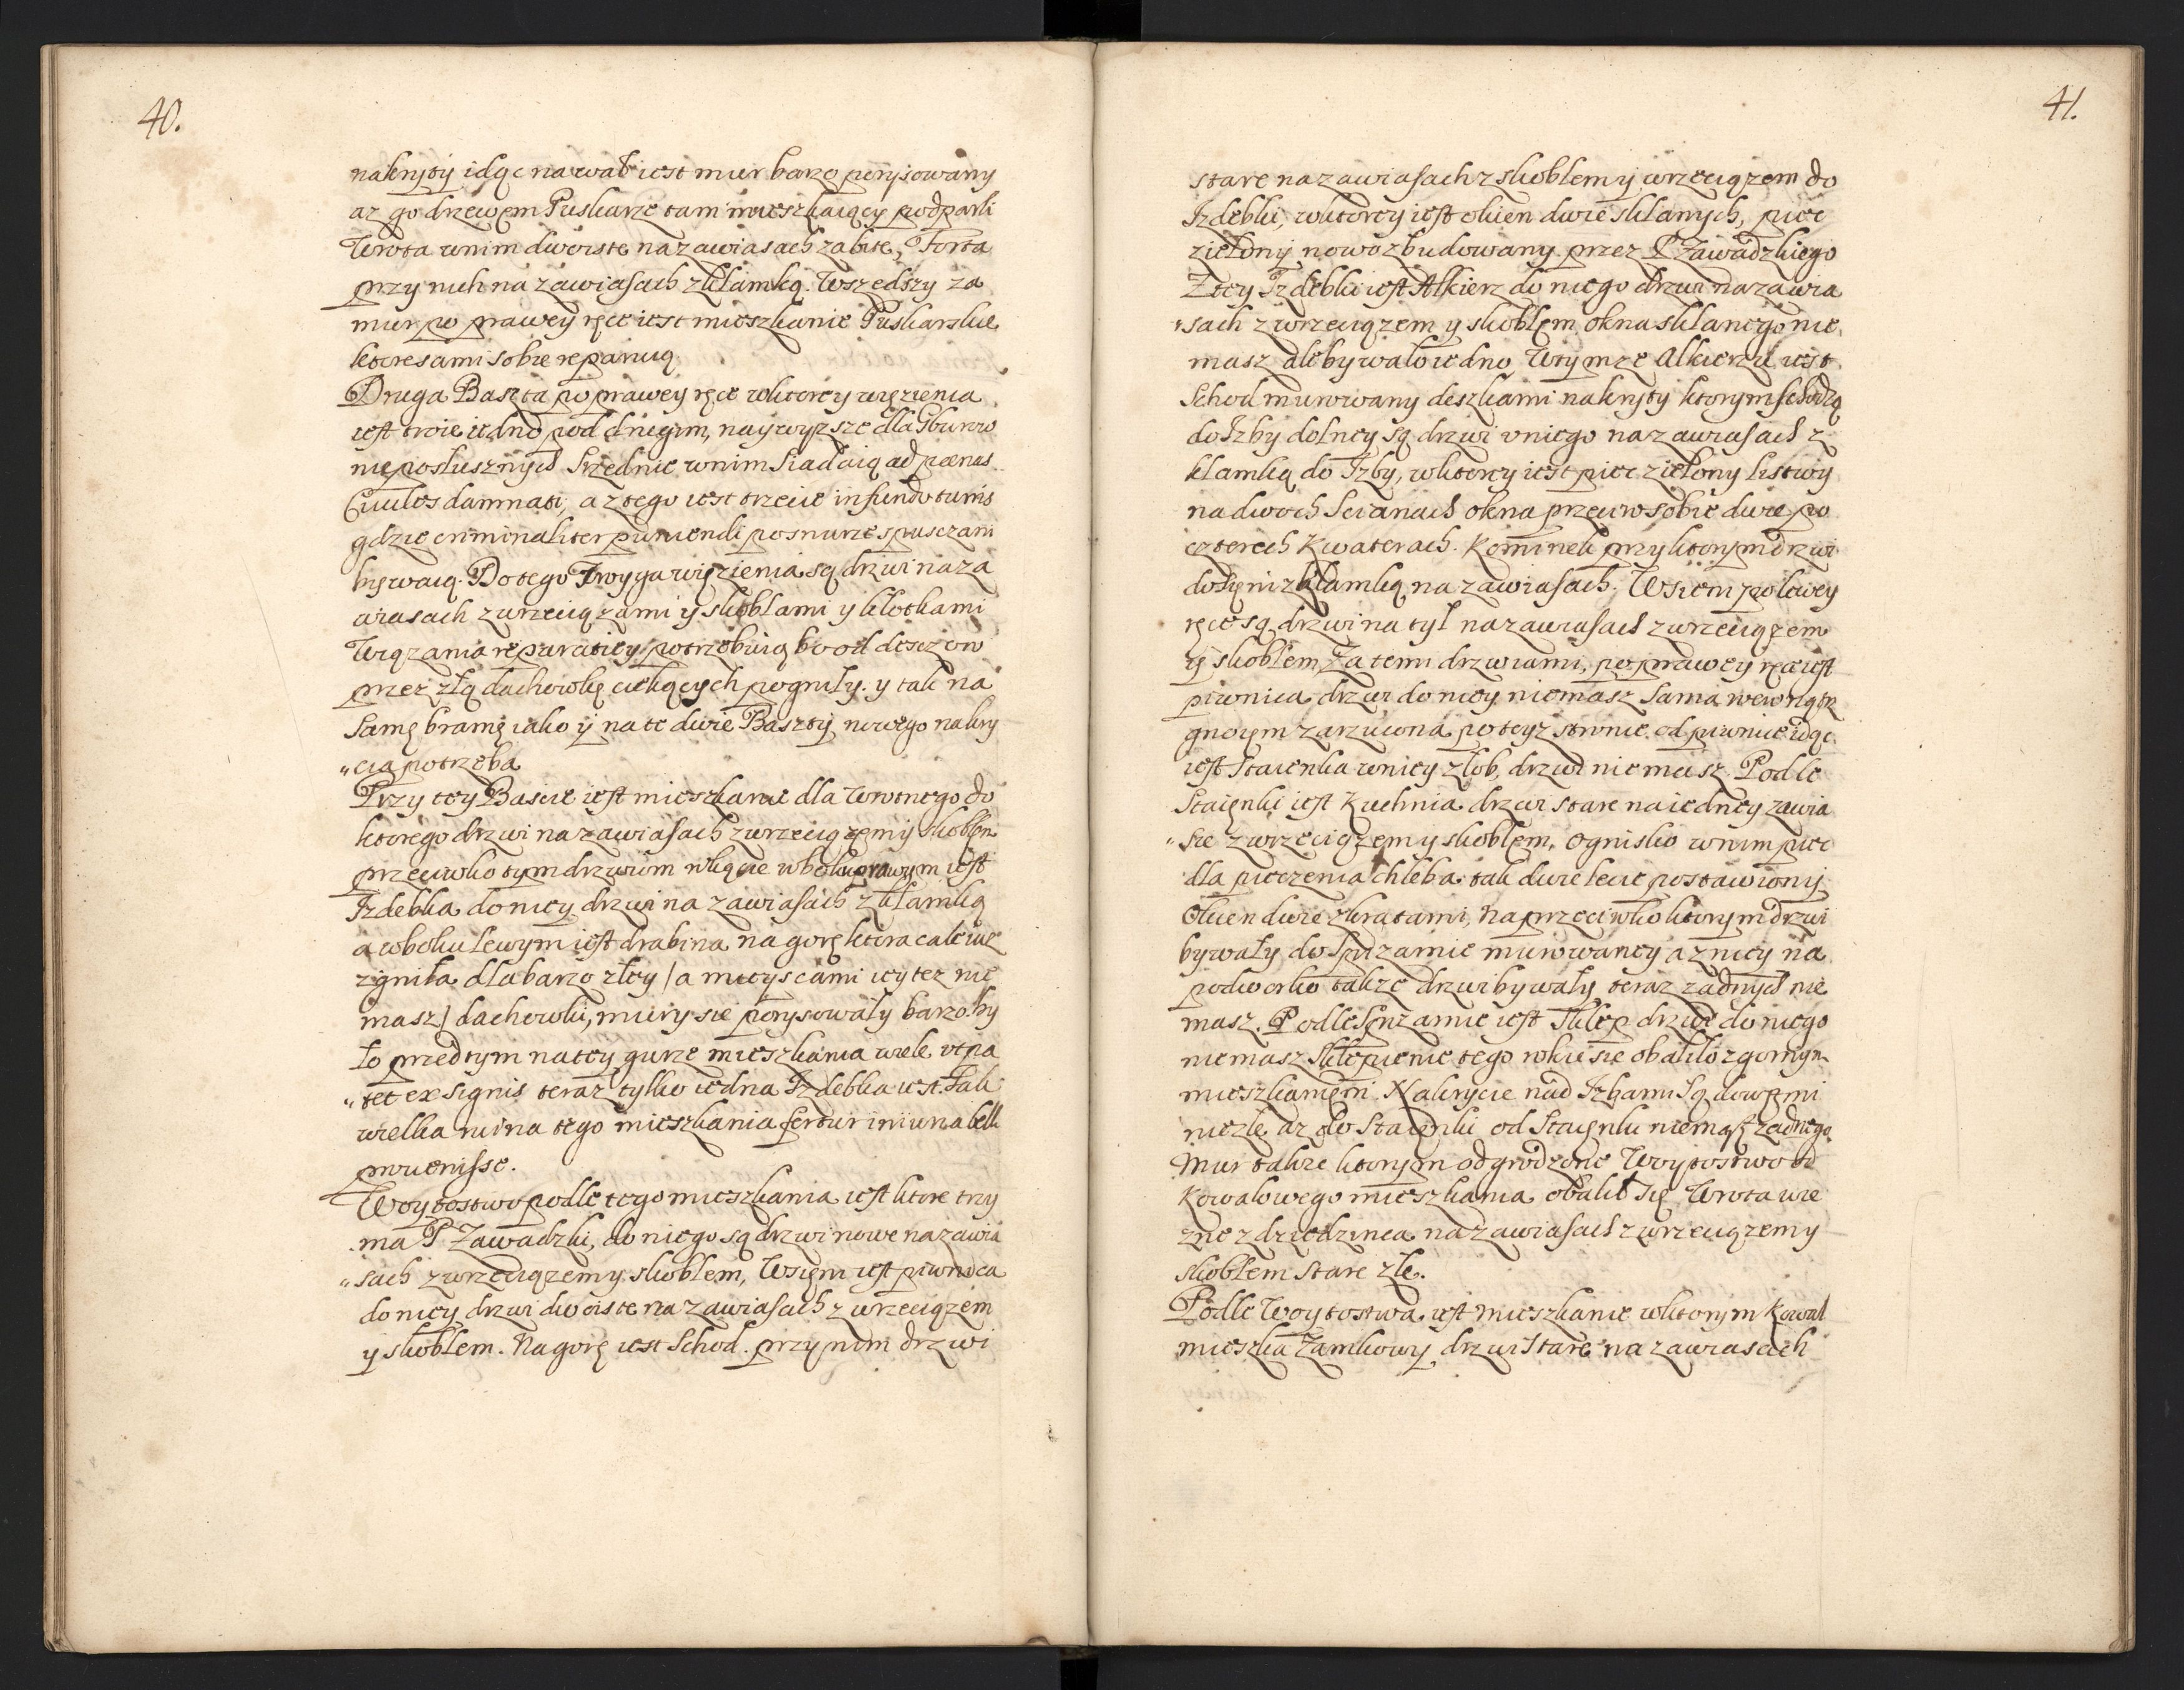 40.
nakryty idąc na wał iest mur barzo porysowany
az go drzewem Puskarze tam mieszkaiący podparli
Wrota w nim dwoiste na zawiasach zabite, Forta
przy nich na zawiasach z klamką. Wszedszy za
mur po prawey ręce iest mieszkanie Puskarskie
ktore sami sobie reparuią
Druga Baszta po prawey ręce w ktorey więzienia
iest troie iedno pod drugim, naywyzsze dla Gburow
nieposłusznych srzednie w nim siadaią ad pœnas
Ciuiles damnati, a z tego iest trzecie in fundo turris
gdzie criminaliter puniendi po snurze spusczani
bywaią. Do tego Troyga więzienia są drzwi na za
wiasach z wrzeciązami y skoblami y klotkami
Wiązania reparatiey potrzebuią bo od desczow
przez złą dachowkę ciekących pogniły. y tak na
samę bramę iako y na te dwie Baszty nowego nakry
„cia potrzeba
Przy tey Bascie iest mieszkanie dla Wrotnego do
ktorego drzwi na zawiasach z wrzeciązem y skoblem
przeciwko tym drzwiom w kącie w boku prawym iest
Izdebka do niey drzwi na zawiasach z klamką
a w boku lewym iest drabina na gorę ktora cale iuz
zgniła dla barzo złey / a mieyscami iey tez nie
masz / dachowki, mury sie porysowały barzo. by
ło przed tym na tey gurze mieszkania wiele vt pa
„tet ex signis teraz tylko iedna Izdebka iest. Tak
wielka ruina tego mieszkania fertur iniuria belli
prouenisse.
Woytostwo podle tego mieszkania iest ktore trzy
ma P Zawadzki, do niego są drzwi nowe na zawia
„sach z wrzeciązem y skoblem, W sieni iest piwnica
do niey drzwi dwoiste na zawiasach z wrzeciązem
y skoblem. Na gorę iest Schod. przy nim drzwi
41.
stare na zawiasach z skoblem y wrzeciązem do
Izdebki, w ktorey iest okien dwie sklanych, piec
zielony nowo zbudowany przez P Zawadzkiego
Z tey Izdebki iest Alkierz do niego drzwi na zawia
„sach z wrzeciązem y skoblem, okna sklanego nie
masz ale bywało iedno, W tymze Alkierzu iest
Schod murowany deszkami nakryty ktorym schodzą
do Izby dolney są drzwi v niego na zawiasach z
klamką do Izby, w ktorey iest piec zielony listwy
na dwoch scianach okna przeciw sobie dwie po
czterech Kwaterach. Kominek przy ktorym drzwi
do sieni z klamką na zawiasach. W sieni po lewey
ręce są drzwi na tył na zawiasach z wrzeciązem
y skoblem, Za temi drzwiami, po prawey ręce iest
piwnica drzwi do niey niemasz sama wewnątrz
gnoiem zarzucona po teyz stronie od piwnice idąc
iest Staienka w niey złob, drzwi niemasz. Podle
Staienki iest Kuchnia drzwi stare na iedney zawia
„sie z wrzeciązem y skoblem, ognisko w nim piec
dla pieczenia chleba tak dwie lecie postawiony
Okien dwie z kratami, Naprzeciwko ktorym drzwi
bywały do spizarnie murowaney a z niey na
podworko takze drzwi bywały teraz zadnych nie
masz. Podle Spizarnie iest Sklep drzwi do niego
niemasz Sklepienie tego roku się obaliło z gornym
mieszkaniem. Nakrycie nad Izbami są dowpemi
niezłe az do Staienki od Staienki niemasz zadnego
Mur takze ktorym odgrodzone Woytostwo od
Kowalowego mieszkania obalił się Wrota wie
zne z dziedzinca na zawiasach z wrzeciązem y
skoblem stare złe.
Podle Woytostwa iest mieszkanie w ktorym Kowal
mieszka Zamkowy drzwi stare na zawiasach